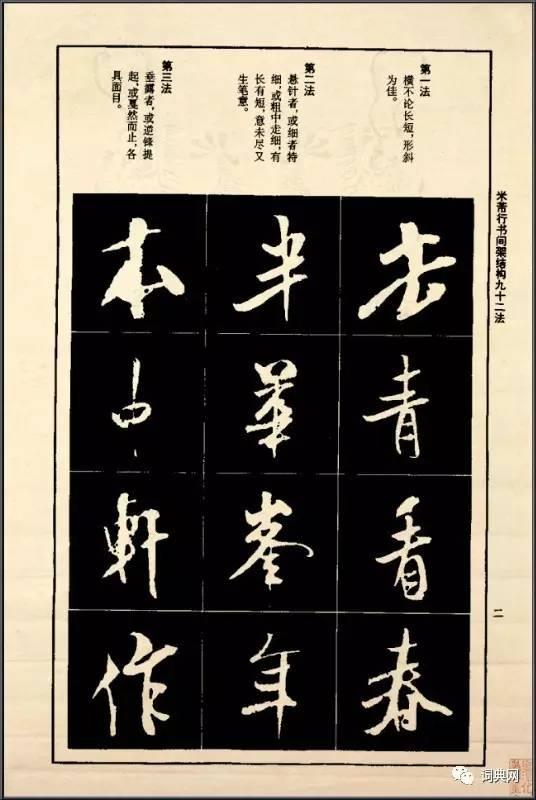 米芾行书间架结构九十二法
第一法
横不论长短，形斜
为佳。
去
青
看
春
第二法
悬针者，或细者特
细，或粗中走细，有
长有短，意未尽又
生笔意。
半
华
峯
年
第三法
垂露者，或逆锋提
起，或戛然而止，各
具面目。
本
中
軒
作
二
词典网